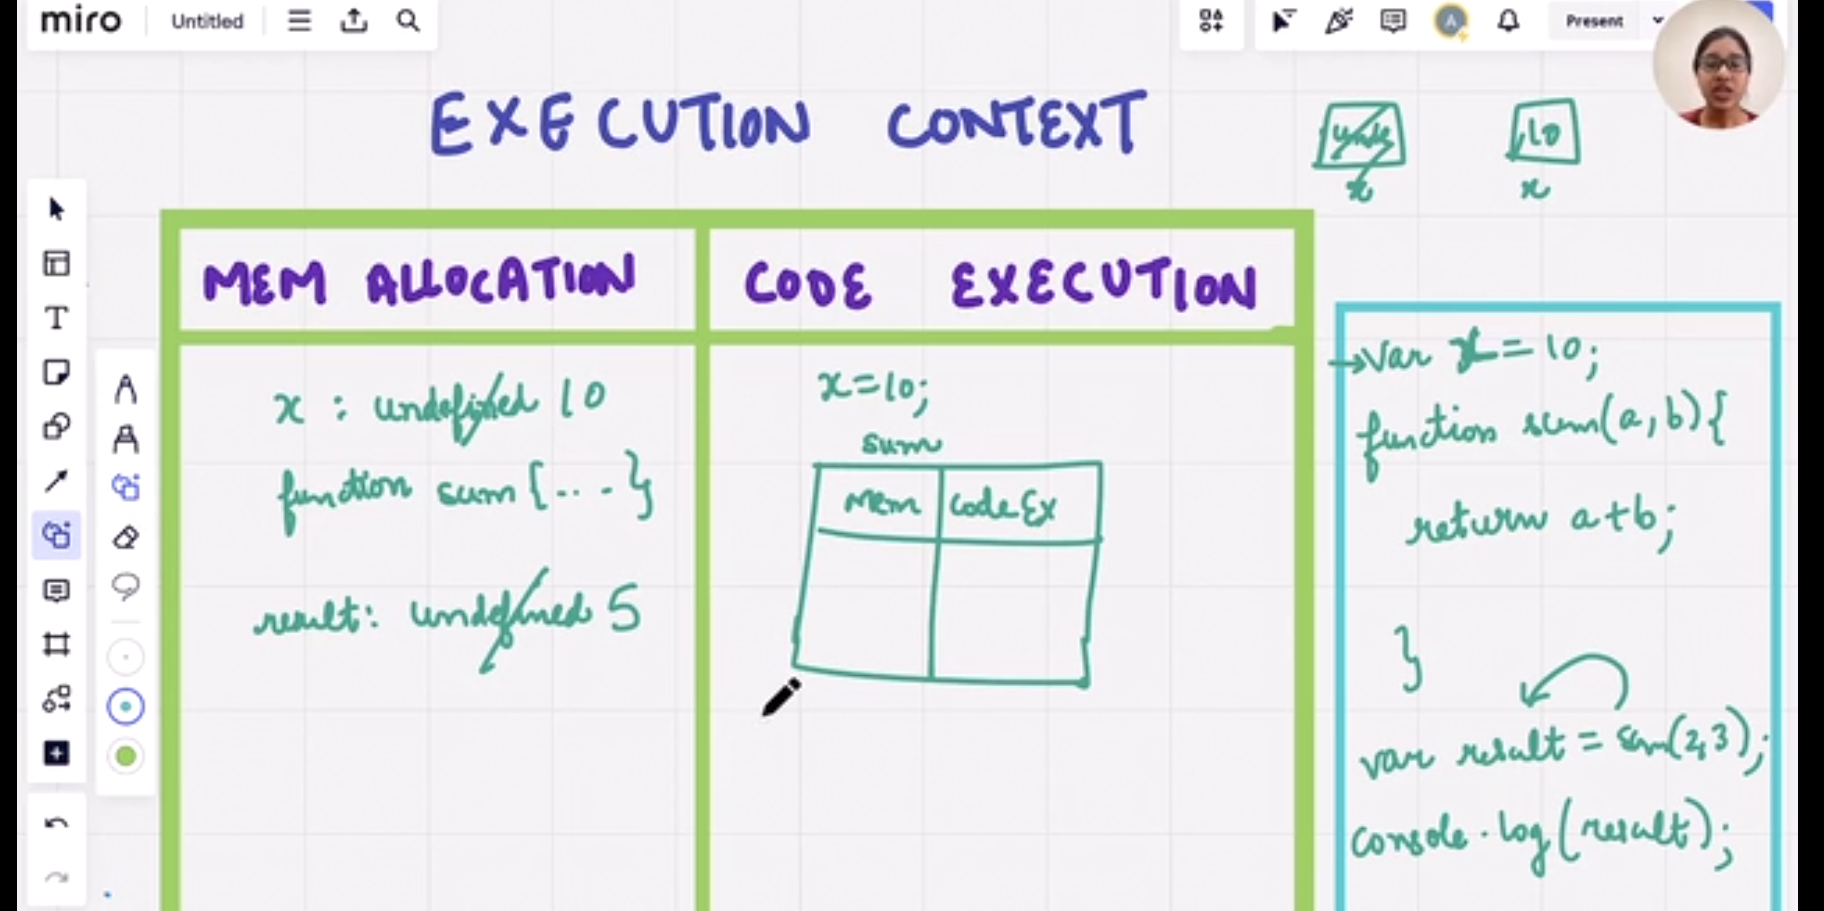 miro
Untitled
A
Present
EXECUTION CONTEXT
10
x
x
MEM ALLOCATION
CODE EXECUTION
x : undefined 10
function sum {...}
result: undefined 5
x=10;
sum
Mem
Code Ex
→var x=10;
function sum(a,b){
return a+b;
}
var result = sum(2,3);
console.log(result);
T